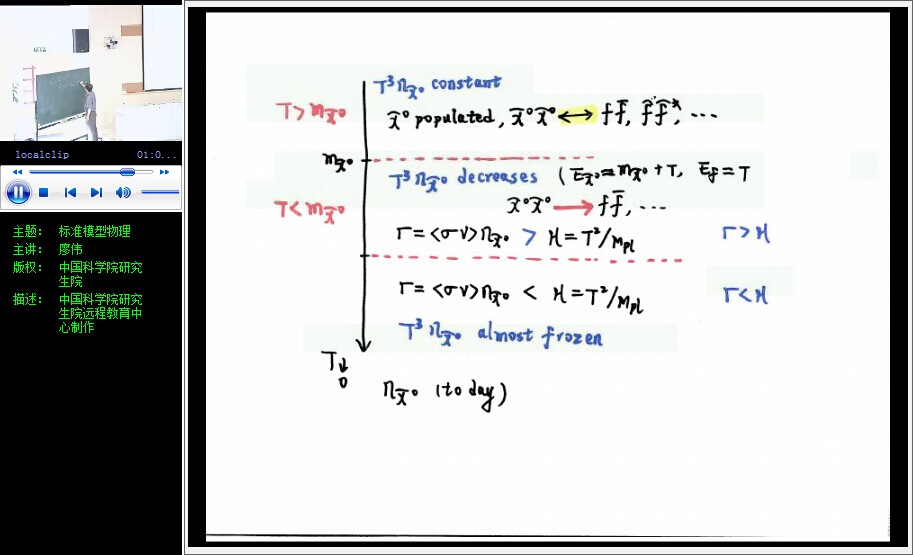 localclip
01:0...
主题: 标准模型物理
主讲: 廖伟
版权: 中国科学院研究
生院
描述: 中国科学院研究
生院远程教育中
心制作
T³n_χ̃⁰ constant
T > m_χ̃⁰
χ̃⁰ populated, χ̃⁰χ̃⁰ ↔ f f̄, f̃ f̃*, ...
m_χ̃⁰
T³n_χ̃⁰ decreases (Ē_χ̃⁰ ≈ m_χ̃⁰ + T, Ē_f = T
T < m_χ̃⁰
χ̃⁰χ̃⁰ → f f̄, ...
Γ = <σv> n_χ̃⁰ > H = T²/M_pl Γ > H
Γ = <σv> n_χ̃⁰ < H = T²/M_pl Γ < H
T³ n_χ̃⁰ almost frozen
T↓
0
n_χ̃⁰ (today)